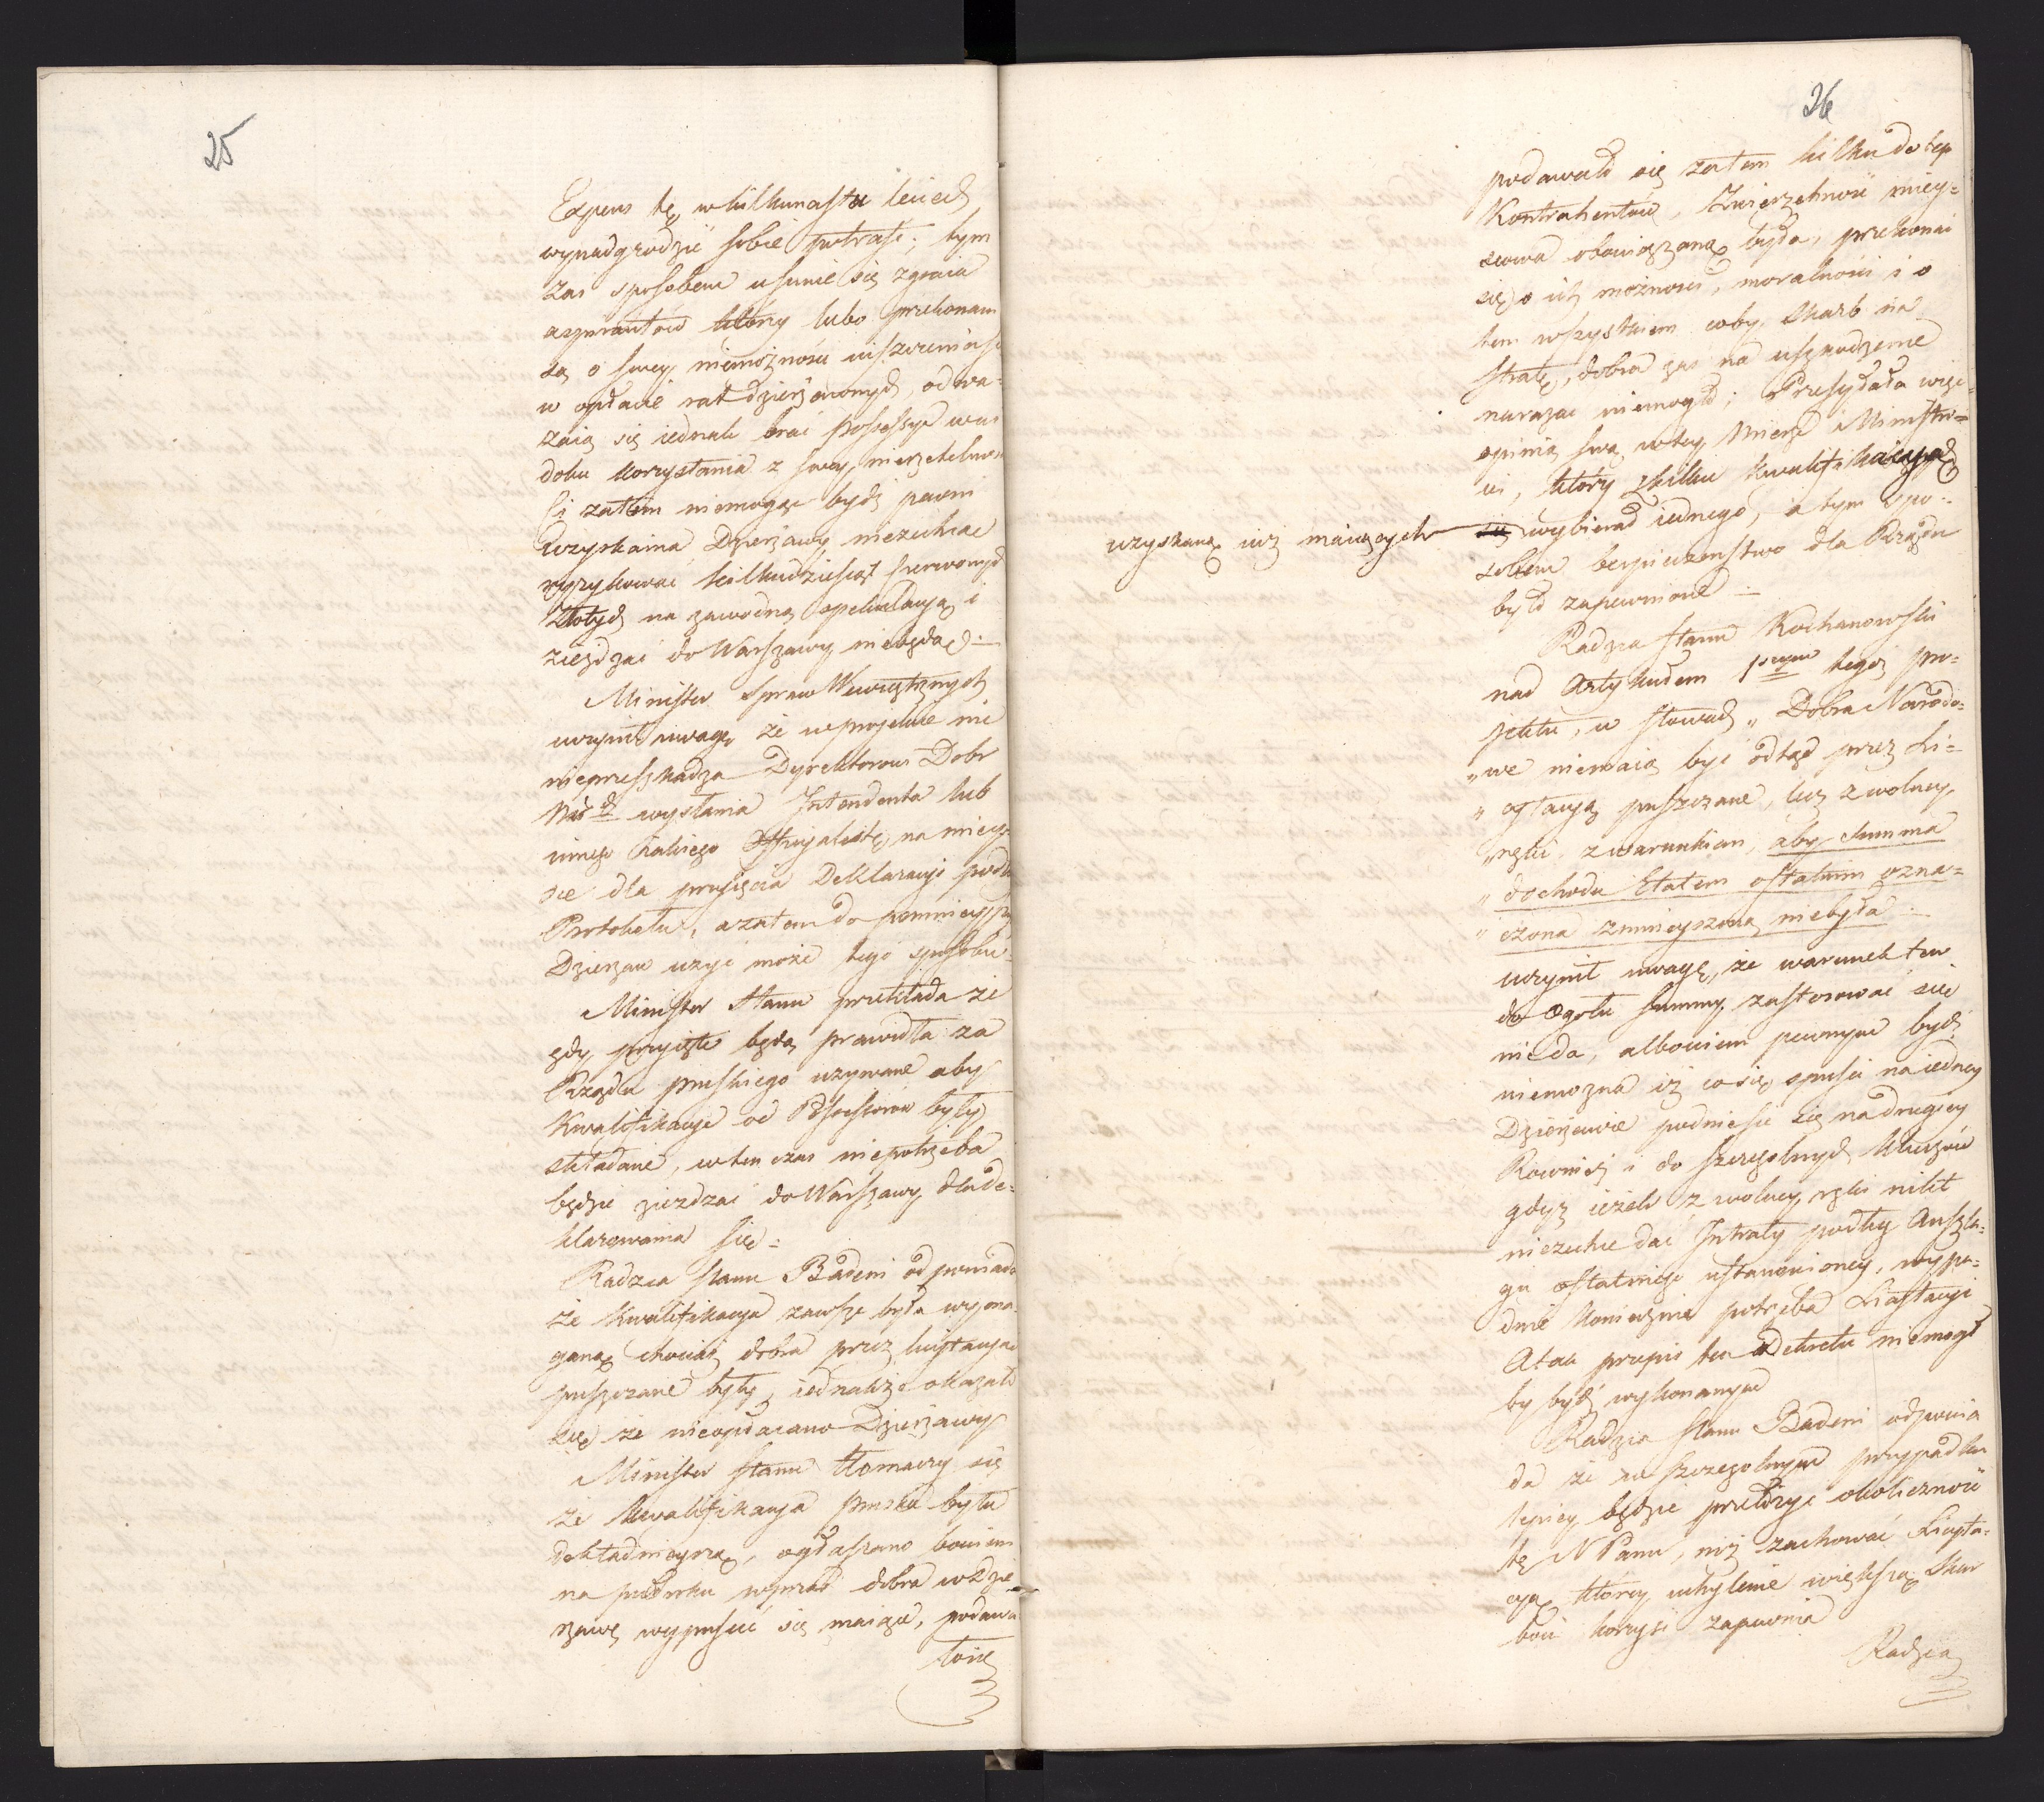 25
Expens tę w kilkunastu leciech
wynadgrodzić sobie potrafi; tym
zas sposobem usunie się zgraia
aspirantow którzy lubo przekonani
są o swey niemożności uiszczenia się
w opłacie rat dzierżawnych, odwa-
zaią się iednak brać possessye w wi
doku korzystania z swey nierzetelnos
Ci zatem niemogąc bydź pewni
Uzyskania Dzierżawy niezechcą
ryzykować kilkudziesiąt czerwonych
Złotych na zawodną spekulacyą i
zieżdzać do Warszawy niebędą.
Minister Spraw Wewnętrznych
uczynił uwagę że w projekcie nic
nieprzeszkadza Dyrektorowi Dobr
Nar.ch wysłania Intendenta lub
innego iakiego Officyalistę na miey-
sce dla przyięcia Deklaracyi podług
Protokołu, a zatem do pomnieyszych
Dzierżaw użyć może tego sposobu
Minister Stanu przekłada że
gdy przyięte będą prawidła za
Rządu pruskiego używane aby
Kwalifikacye od Possessorów były
składane, w ten czas niepotrzeba
będzie ziezdzać do Warszawy dla de-
klarowania się
Radzca Stanu Badeni odpowiada
że kwalifikacya zawsze była wyma-
ganą chociaż dobra przez licytacyą
puszczane były, iednakże okazało
się że nieopłacano Dzierżawy
Minister Stanu tłomaczy się
że kwalifikacya pruska była
dokładnieyszą, ogłaszano bowiem
na pół roku wprzód dobra w dzie-
rzawę wypuścić się maiące, podawa
ło się

26
podawało się zatem kilku do tey
Kontrahentow, Zwierzchność miey-
scowa obowiązaną była, przekonać
się o ich możności, moralności i o
tem wszystkiem coby Skarb na
stratę, dobra zaś na uszkodzenie
narazac niemogło; Przesyłała więc
opinią swą w tey mierze Ministro-
wi, który z kilku kwalifikacyą
uzyskaną iuż maiących się wybierał iednego, a tym spo-
sobem bespieczenstwo dla Rządu
było zapewnione
Radzca Stanu Kochanowski
nad Artykułem 1szym tegoż pro-
jektu, w słowach „Dobra Narodo-
„we niemaią być odtąd przez Li-
„cytacyą puszczane, lecz z wolney
„ręki, z warunkiem, aby summa
„dochodu Etatem ostatnim ozna-
„czona zmnieyszoną niebyła
uczynił uwagę, że warunek ten
do ogołu summy zastosować się
nie da, albowiem pewnym bydź
niemożna iż co się spuści na iedney
Dzierżawie podniesie się na drugiey
Rownież i do szczególnych Kluczów
gdyż ieżeli z wolney ręki nikt
niezechce dać Intraty podług Anszla-
gu ostatniego ustanowioney, wypa-
dnie koniecznie potrzeba Licytacyi
A tak przepis ten Dekretu niemogł
by bydź wykonanym
Radzca Stanu Badeni odpowia
da że w szczególnym przypadku
lepiey będzie przełożyć okoliczność
tę N Panu, niż zachować Licyta-
cyą którey uchylenie większą Skar
bowi korzyść zapewnia
Radzca